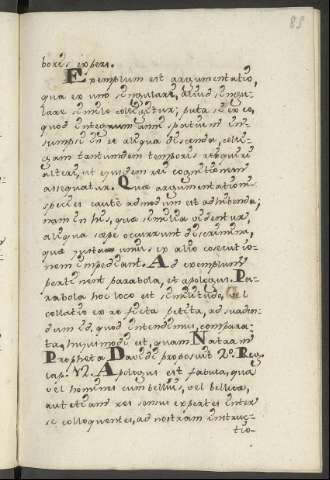 85
bores expers.
Exemplum est argumentatio,
qua ex uno singulari, aliud singu-
lare simile colligitur; puta si ex eo,
quod integrum anni spatium in-
sumpsi in re aliqua discenda, colli-
gam tantundem temporis requiri
alteri, ut ejusdem rei cognitionem
assequatur. Quæ argumentationis
species cautè admodum est adhibenda;
nam in his, quæ similia videntur,
aliqua sæpe occurrunt discrimina,
quæ unius ex alio consecutio-
nem impediant. Ad exemplum
pertinent parabola, et apologus. Pa-
rabola hoc loco est similitudo, vel
collatio ex re ficta petita, ad suaden-
dum id, quod intendimus, compara-
ta, hujusmodi est, quam Natam
Propheta Davidi proposuit 2º. Reg.
cap. 12. Apologus est fabula, qua
vel homines cum belluis, vel belluæ,
aut etiam res sensus expertes inter
se colloquentes, ad nostram instruc-
tio-